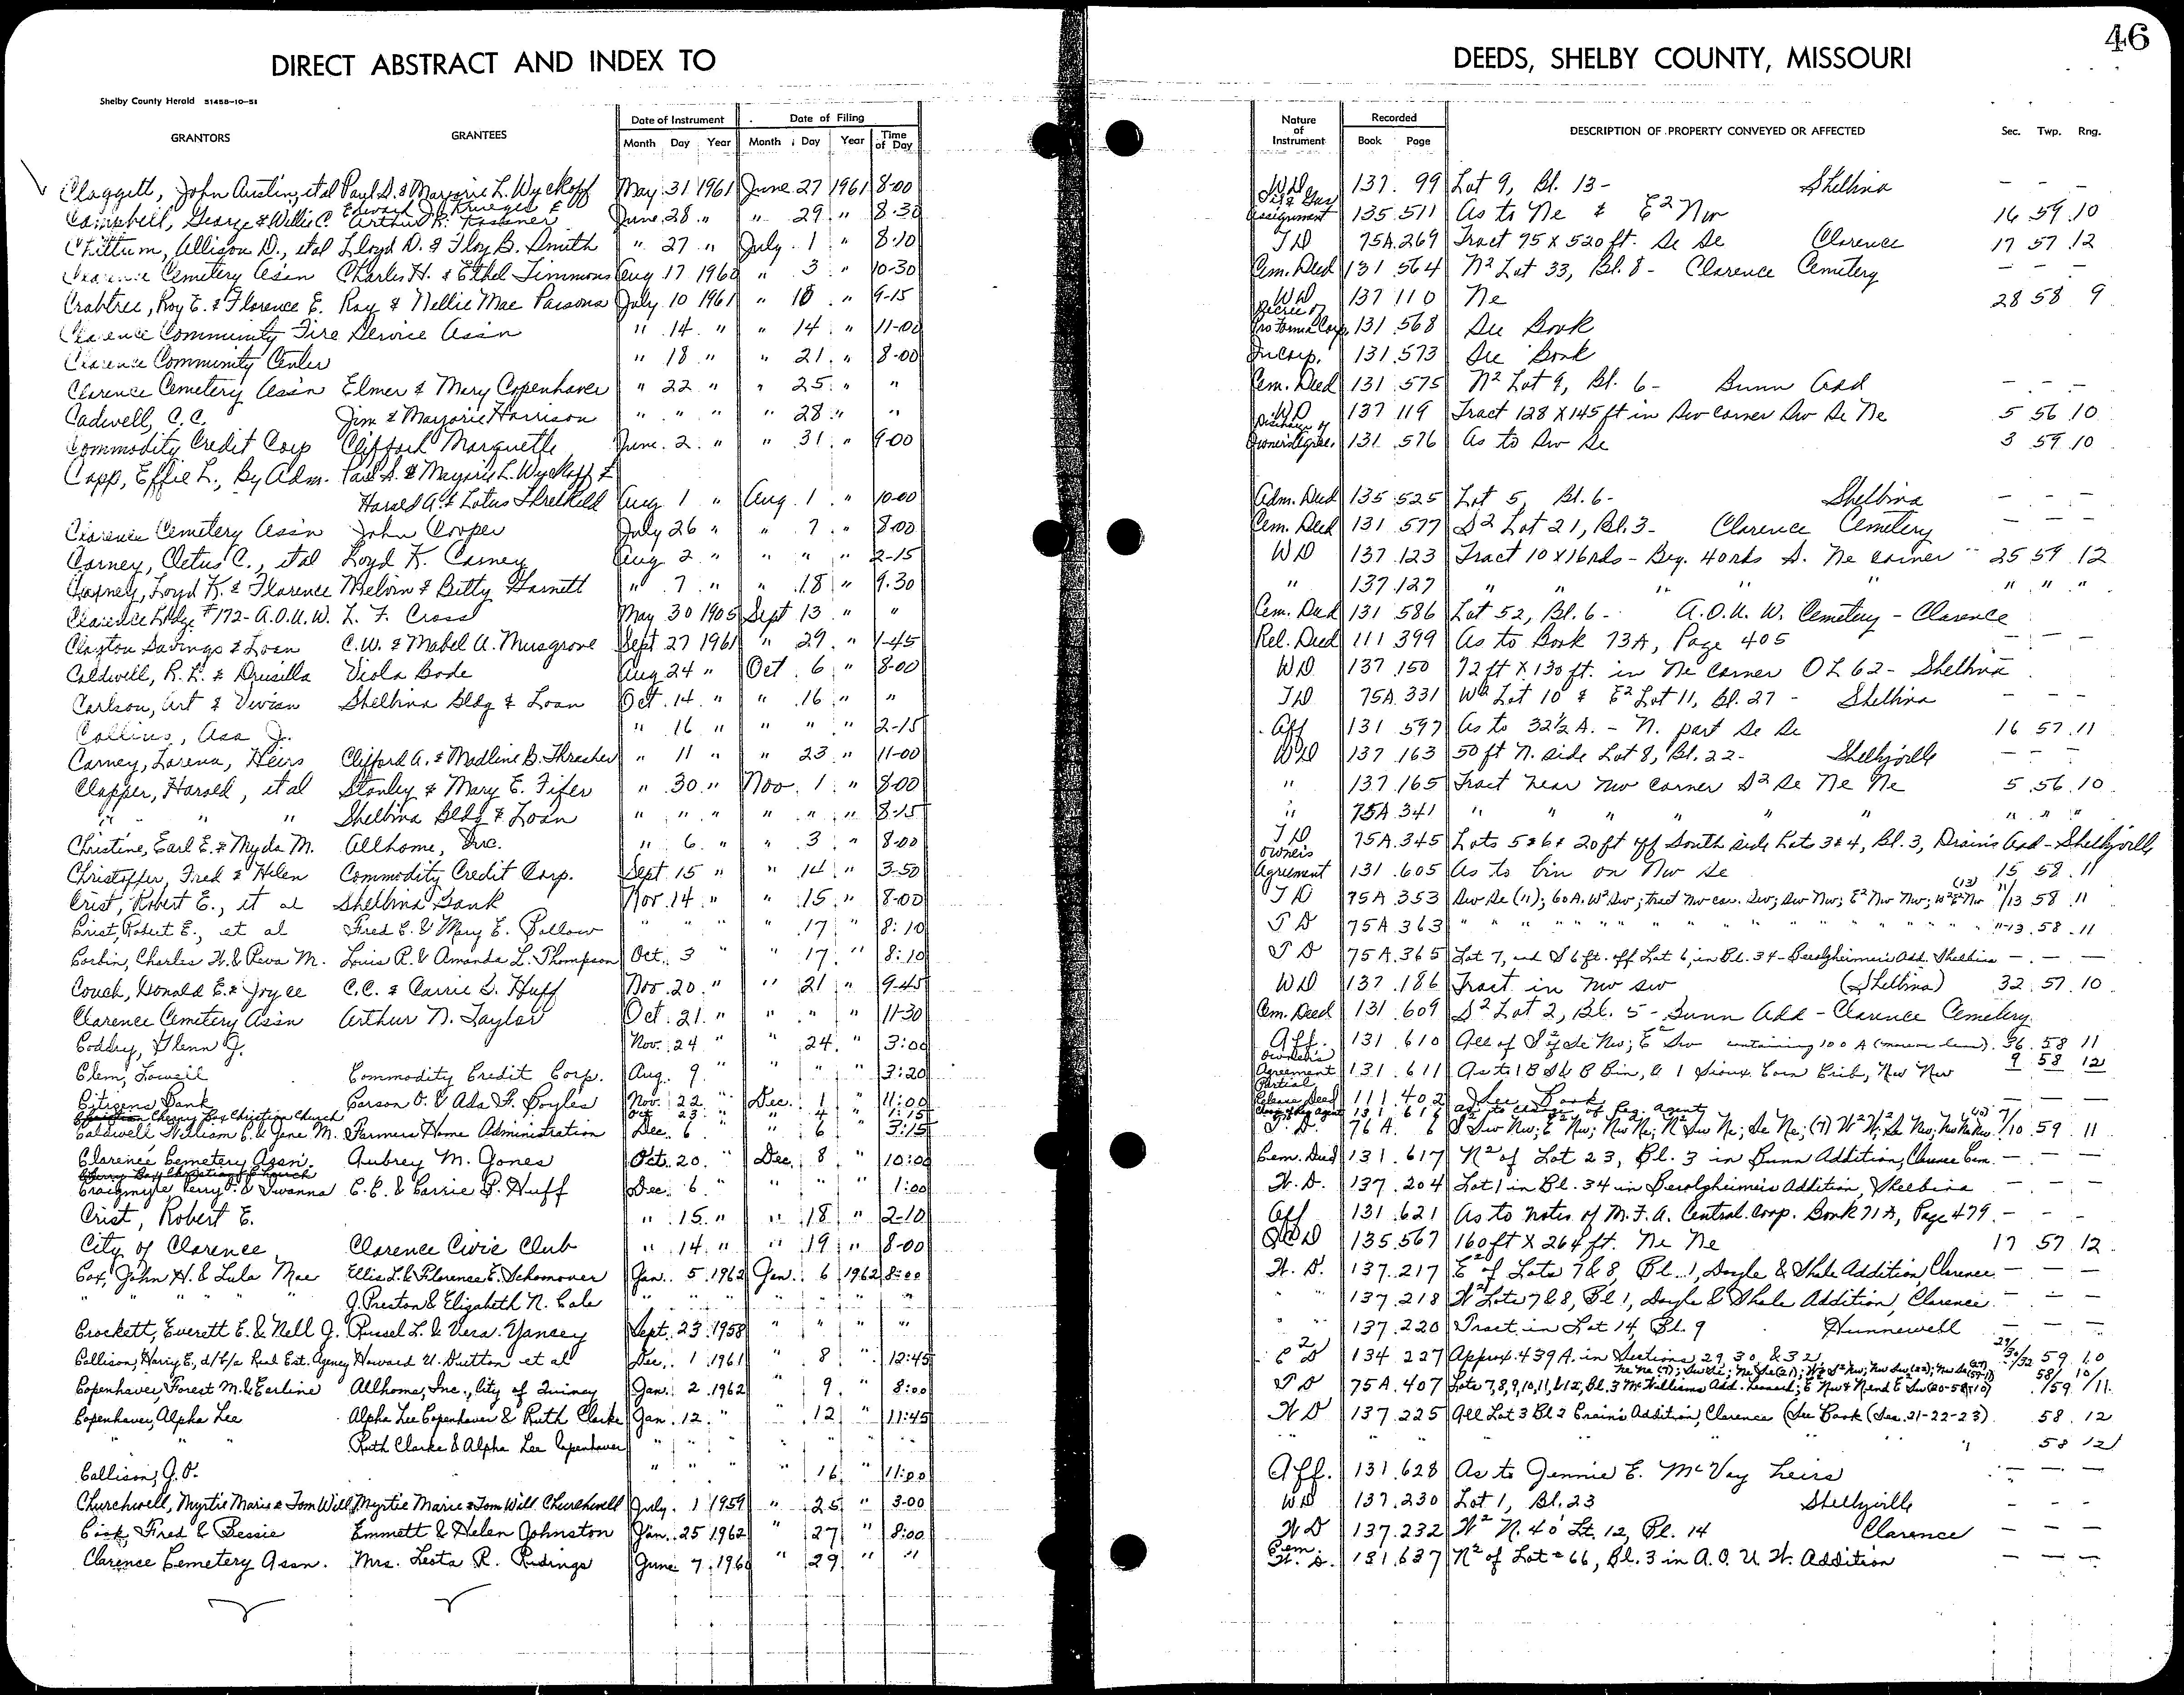 46
DIRECT ABSTRACT AND INDEX TO DEEDS, SHELBY COUNTY, MISSOURI
Shelby County Herald 51458-10-51
GRANTORS GRANTEES Date of Instrument Month Day Year Date of Filing Month Day Year Time of Day Nature of Instrument Recorded Book Page DESCRIPTION OF PROPERTY CONVEYED OR AFFECTED Sec. Twp. Rng.
Claggett, John Austin, etal Paul S. & Marjorie L. Wyckoff May 31 1961 June 27 1961 8-00 WD 137 99 Lot 9, Bl. 13- Shelbina — — —
Campbell, George & Willie C. Edward J. Krueger & Arthur R. June 28 " " 29 " 8-30 Assignment 135 511 As to Ne & E² Nw 16 59 10
Chittum, Allison D., etal Lloyd D. & Floy B. Smith " 27 " July 1 " 8-10 TD 75A 269 Tract 95 X 520 ft. Se Se Clarence 17 57 12
Clarence Cemetery Ass'n Charles H. & Ethel Timmons Aug 17 1960 " 3 " 10-30 Cem. Deed 131 564 N² Lot 33, Bl. 8 - Clarence Cemetery — — —
Crabtree, Roy E. & Florence E. Ray & Nellie Mae Parsons July 10 1961 " 10 " 9-15 WD 137 110 Ne 28 58 9
Clarence Community Fire Service Ass'n " 14 " " 14 " 11-00 Decree of Pro Forma Corp. 131 568 See Book
Clarence Community Center " 18 " " 21 " 8-00 Incorp. 131 573 See Book
Clarence Cemetery Ass'n Elmer & Mary Copenhaver " 22 " " 25 " " Cem. Deed 131 575 N² Lot 9, Bl. 6- Bunn Add — — —
Cadwell, C.C. Jim & Marjorie Harrison " " " " 28 " " WD 137 119 Tract 128 X 145 ft in Sw corner Sw Se Ne 5 56 10
Commodity Credit Corp Clifford Marquette June 2 " " 31 " 9-00 Discharge of Owners Agree. 131 576 As to Sw Se 3 59 10
Capp, Effie L., By Adm. Paul S. & Marjorie L. Wyckoff &
Harold A. & Lotus Threlkeld Aug 1 " Aug. 1 " 10-00 Adm. Deed 135 525 Lot 5, Bl. 6- Shelbina — — —
Clarence Cemetery Ass'n John Cooper July 26 " " 7 " 8-00 Cem. Deed 131 577 S² Lot 21, Bl. 3- Clarence Cemetery — — —
Carney, Cletus C., etal Loyd K. Carney Aug 2 " " " " 2-15 WD 137 123 Tract 10 X 16 rds - Beg. 40 rds S. Ne corner 25 59 12
Carney, Loyd K. & Florence Melvin & Betty Garnett " 7 " " 18 " 9-30 " 137 127 " " " " " " " "
Clarence Lodge #172- A.O.U.W. L. F. Cross May 30 1905 Sept 13 " " Cem. Deed 131 586 Lot 52, Bl. 6- A.O.U.W. Cemetery - Clarence
Clayton Savings & Loan C.W. & Mabel A. Musgrove Sept 27 1961 " 29 " 1-45 Rel. Deed 111 399 As to Book 73A, Page 405 — — —
Caldwell, R.L. & Drusilla Viola Bode Aug 24 " Oct 6 " 8-00 WD 137 150 72 ft X 130 ft. in Ne corner OL 62- Shelbina
Carlson, Art & Vivian Shelbina Bldg & Loan Oct. 14 " " 16 " " TD 75A 331 W² Lot 10 & E² Lot 11, Bl. 27 - Shelbina — — —
Collins, Asa J. " 16 " " " " 2-15 Aff 131 597 As to 32½ A. - N. part Se Se 16 57 11
Carney, Lorena, Heirs Clifford A. & Madline B. Thrasher " 11 " " 23 " 11-00 WD 137 163 50 ft N. side Lot 8, Bl. 22- Shelbyville — — —
Clapper, Harold, etal Stanley & Mary E. Fifer " 30 " Nov. 1 " 8-00 " 137 165 Tract near Nw corner S² Se Ne Ne 5 56 10
" " " Shelbina Bldg & Loan " " " " " " 8-15 " 75A 341 " " " " " " " " "
Christine, Earl E. & Myda M. Allhome, Inc. " 6 " " 3 " 8-00 TD 75A 345 Lots 5 & 6 & 20 ft off South side Lots 3 & 4, Bl. 3, Drains Add - Shelbyville
Christoffer, Fred & Helen Commodity Credit Corp. Sept. 15 " " 14 " 3-50 Owners Agreement 131 605 As to bin on Nw Se 15 58 11
Crist, Robert E., et al Shelbina Bank Nov. 14 " " 15 " 8-00 TD 75A 353 Sw Se (11); 60 A. W² Sw; tract Nw cor. Sw; Sw Nw; E² Nw Nw; W² E² Nw (13) 11/13 58 11
Crist, Robert E., et al Fred C. & Mary E. Pollow " " " " 17 " 8:10 TD 75A 363 " " " " " " " " 11-13 58 11
Corbin, Charles H. & Reva M. Louis R. & Amanda L. Thompson Oct. 3 " " 17 " 8:10 TD 75A 365 Lot 7, and S 6 ft. off Lot 6, in Bl. 34 - Berolzheimer's Add. Shelbina — — —
Couch, Donald E. & Joyce C.C. & Carrie S. Huff Nov. 20 " " 21 " 9-45 WD 137 186 Tract in Nw Sw (Shelbina) 32 57 10
Clarence Cemetery Ass'n Arthur N. Taylor Oct. 21 " " " " 11-30 Cem. Deed 131 609 S² Lot 2, Bl. 5 - Bunn Add - Clarence Cemetery
Coddry, Glenn J. Nov. 24 " " 24 " 3:00 Aff. 131 610 All of S² of Se Nw; E² Sw containing 100 A (more or less). 36 58 11
Clem, Lowell Commodity Credit Corp. Aug. 9 " " " " 3:20 Owner's Agreement 131 611 As to 18 Bin, & 1 Sioux Corn Crib, Nw Nw 9 58 12
Citizens Bank Carson O. & Ada F. Boyles Nov. 22 " Dec. 1 " 11:00 Partial Release Deed 111 402 See Book — — —
Cherry Box Christian Church Oct 23 " " 4 " 1:15 Change of Reg Agent 131 616 as to change of Reg. agent
Caldwell William C. & Jene M. Farmers Home Administration Dec. 6 " " 6 " 3:15 T.D. 76A 6 7/10 59 11
Clarence Cemetery Assn. Aubrey M. Jones Oct. 20 " Dec. 8 " 10:00 Cem. Deed 131 617 N² of Lot 23, Bl. 3 in Bunn Addition, Clarence Cem. — — —
Craigmyle Perry O. & Iwanna C.C. & Carrie S. Huff Dec. 6 " " " " 1:00 W.D. 137 204 Lot 1 in Bl. 34 in Berolzheimer's Addition, Shelbina — — —
Crist, Robert E. " 15 " " 18 " 2-10 Aff 131 621 As to notes of M.F.A. Central Corp. Book 71A, Page 479. — — —
City of Clarence Clarence Civic Club " 14 " " 19 " 8-00 QCD 135 567 160 ft X 264 ft. Ne Ne 17 57 12
Cox, John H. & Lula Mae Ellis L. & Florence E. Schomover Jan. 5 1962 Jan. 6 1962 8:00 W.D. 137 217 E² of Lots 7 & 8, Bl. 1, Doyle & Shale Addition, Clarence — — —
" " " " J. Preston & Elizabeth N. Cale " " " " " " " " 137 218 W² Lots 7 & 8, Bl 1, Doyle & Shale Addition, Clarence — — —
Crockett, Everett E. & Nell J. Russel L. & Vera Yancey Sept. 23 1958 " " " " " 137 220 Tract in Lot 14, Bl. 9 Hunnewell — — —
Collison, Harry E., d/b/a Real Est. Agency Howard U. Dutton et al Dec. 1 1961 " 8 " 12:45 134 227 Approx. 439 A. in Sections 29, 30, & 32 29/30/32 59 10
Copenhaver, Forest M. & Earline Allhome, Inc., City of Quincy Jan. 2 1962 " 9 " 8:00 TD 75A 407 Lots 7, 8, 9, 10, 11, & 12, Bl. 3 McWilliams Add. Leonard; 58/59 10/11
Copenhaver, Alpha Lee Alpha Lee Copenhaver & Ruth Clarke Jan. 12 " " 12 " 11:45 WD 137 225 All Lot 3 Bl 2 Crain's Addition, Clarence (See Book (Sec. 21-22-23) 58 12
" " " Ruth Clarke & Alpha Lee Copenhaver " " " " " " " " " " " 58 12
Collison, J.O. " " " " 16 " 11:00 Aff. 131 628 As to Jennie E. McVay heirs — — —
Churchwell, Myrtie Marie & Tom Will Myrtie Marie & Tom Will Churchwell July 1 1959 " 25 " 3-00 WD 137 230 Lot 1, Bl. 23 Shelbyville — — —
Cook, Fred & Bessie Emmett & Helen Johnston Jan. 25 1962 " 27 " 8:00 WD 137 232 W² N. 40' Lt. 12, Bl. 14 Clarence — — —
Clarence Cemetery Assn. Mrs. Leota R. Ridings June 7 1960 " 29 " " Cem. W.D. 131 637 N² of Lot 66, Bl. 3 in A.O.U.W. Addition — — —